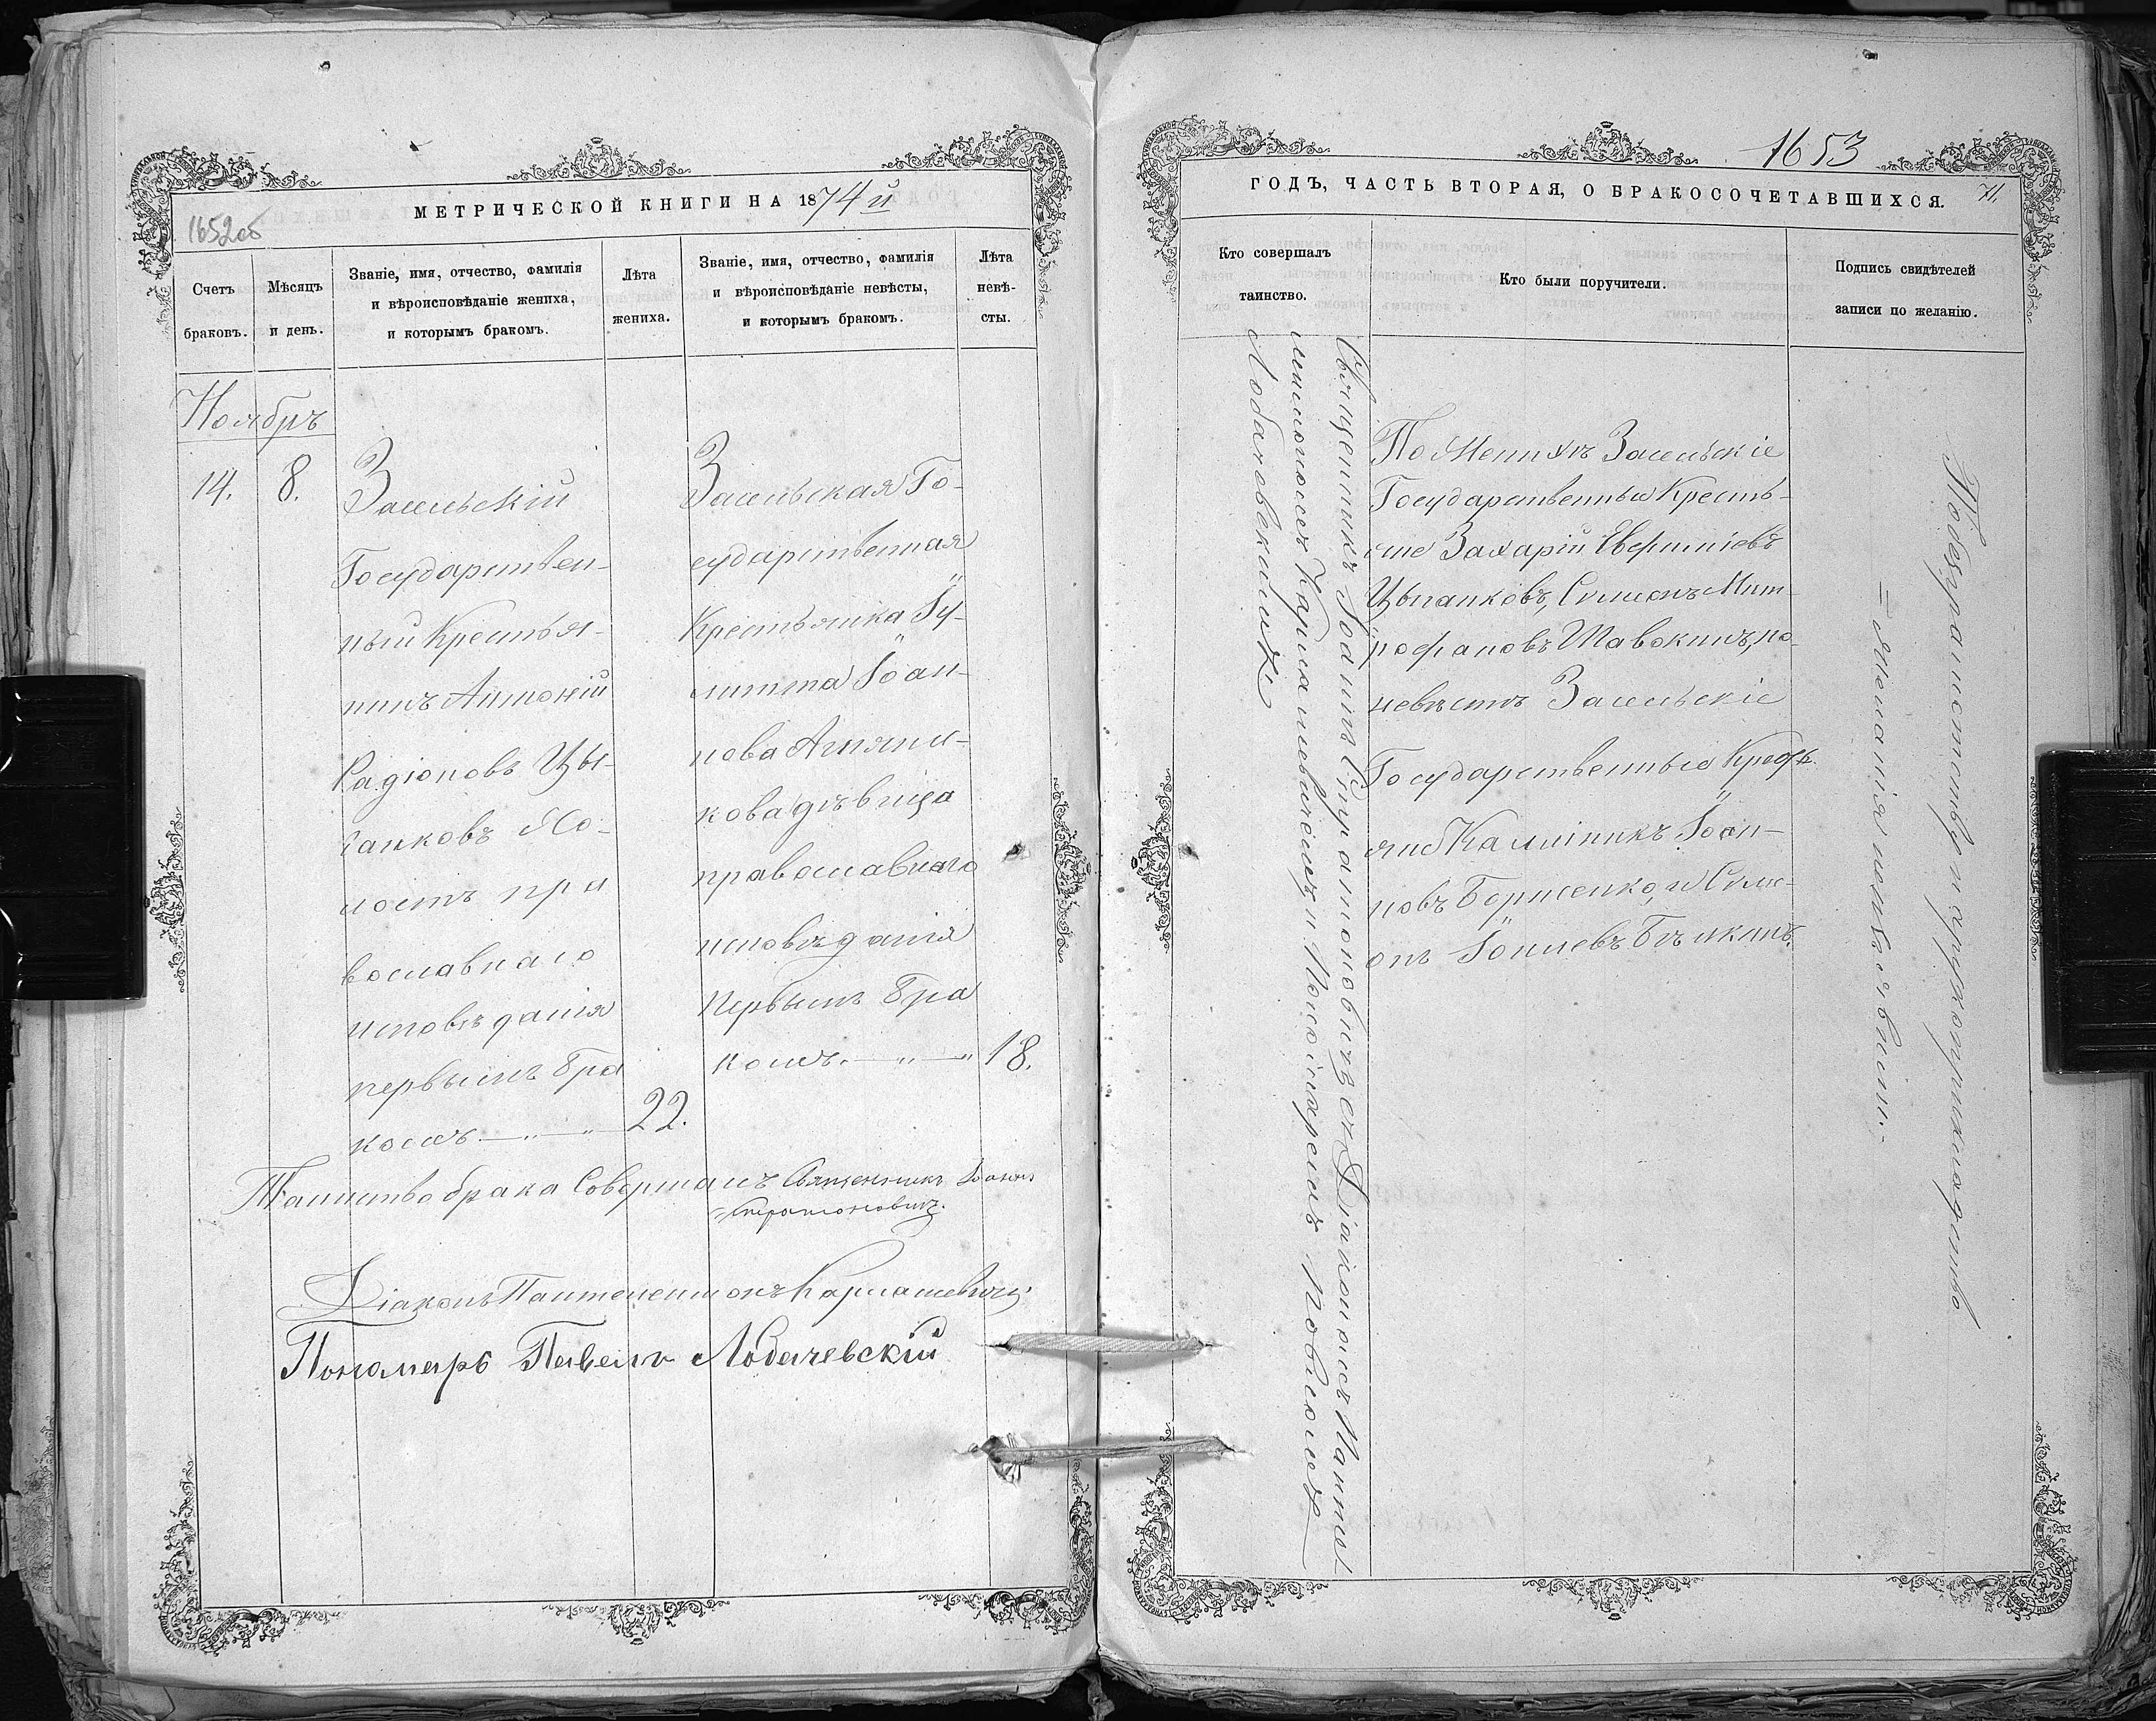 МЕТРИЧЕСКОЙ КНИГИ НА 1874й
1652об
Счетъ браковъ.
Мѣсяцъ и день.
Званіе, имя, отчество, фамилія
и вѣроисповѣданіе жениха,
и которымъ бракомъ.
Лѣта
жениха.
Званіе, имя, отчество, фамилія
и вѣроисповѣданіе невѣсты,
и которымъ бракомъ.
Лѣта
невѣ-
сты.
Ноябрь
14. 8.
Засельскій
Государствен-
ный Крестья-
нинъ Антоній
Радіоновъ Цы-
ганковъ Хо-
лостъ пра
вославнаго
исповѣданія
первымъ бра
комъ. 22.
Засельская Го-
сударственная
Крестьянка Іу-
литта Іоан-
нова
кова дѣвица
православнаго
исповѣданія
первымъ бра
комъ. 18.
Таинство брака Совершалъ Священникъ Іоаннъ
Спиратоновичъ.
Діаконъ Пантелеимонъ Карпашевичъ
Пономарь Павелъ Лобачевскій
1653
ГОДЪ, ЧАСТЬ ВТОРАЯ, О БРАКОСОЧЕТАВШИХСЯ.
71.
Кто совершалъ
таинство.
Кто были поручители.
Подпись свидѣтелей
записи по желанію.
Священникъ Іоаннъ Спиратоновичъ съ Діакономъ Пантел
леимономъ Карпашевичемъ и Пономаремъ Павломъ
Лобачевскимъ
По Женихѣ Засельскіе
Государственные Кресть-
яне Захарій
Цыганковъ, Симеонъ Мит-
рофановъ Шавокинъ, по
невѣстѣ Засельскіе
Государственные Кресть
яне Каллиникъ Іоан-
новъ Борисенко, и Симе-
онъ Бѣлкинъ.
желанія не